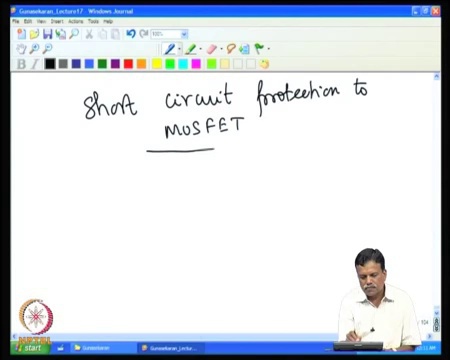 Gunasekaran_Lecture17 - Windows Journal
File Edit View Insert Actions Tools Help
100%
B I
Short circuit protection to
MOSFET
NPTEL
start
Gunasekaran
Gunasekaran_Lectu...